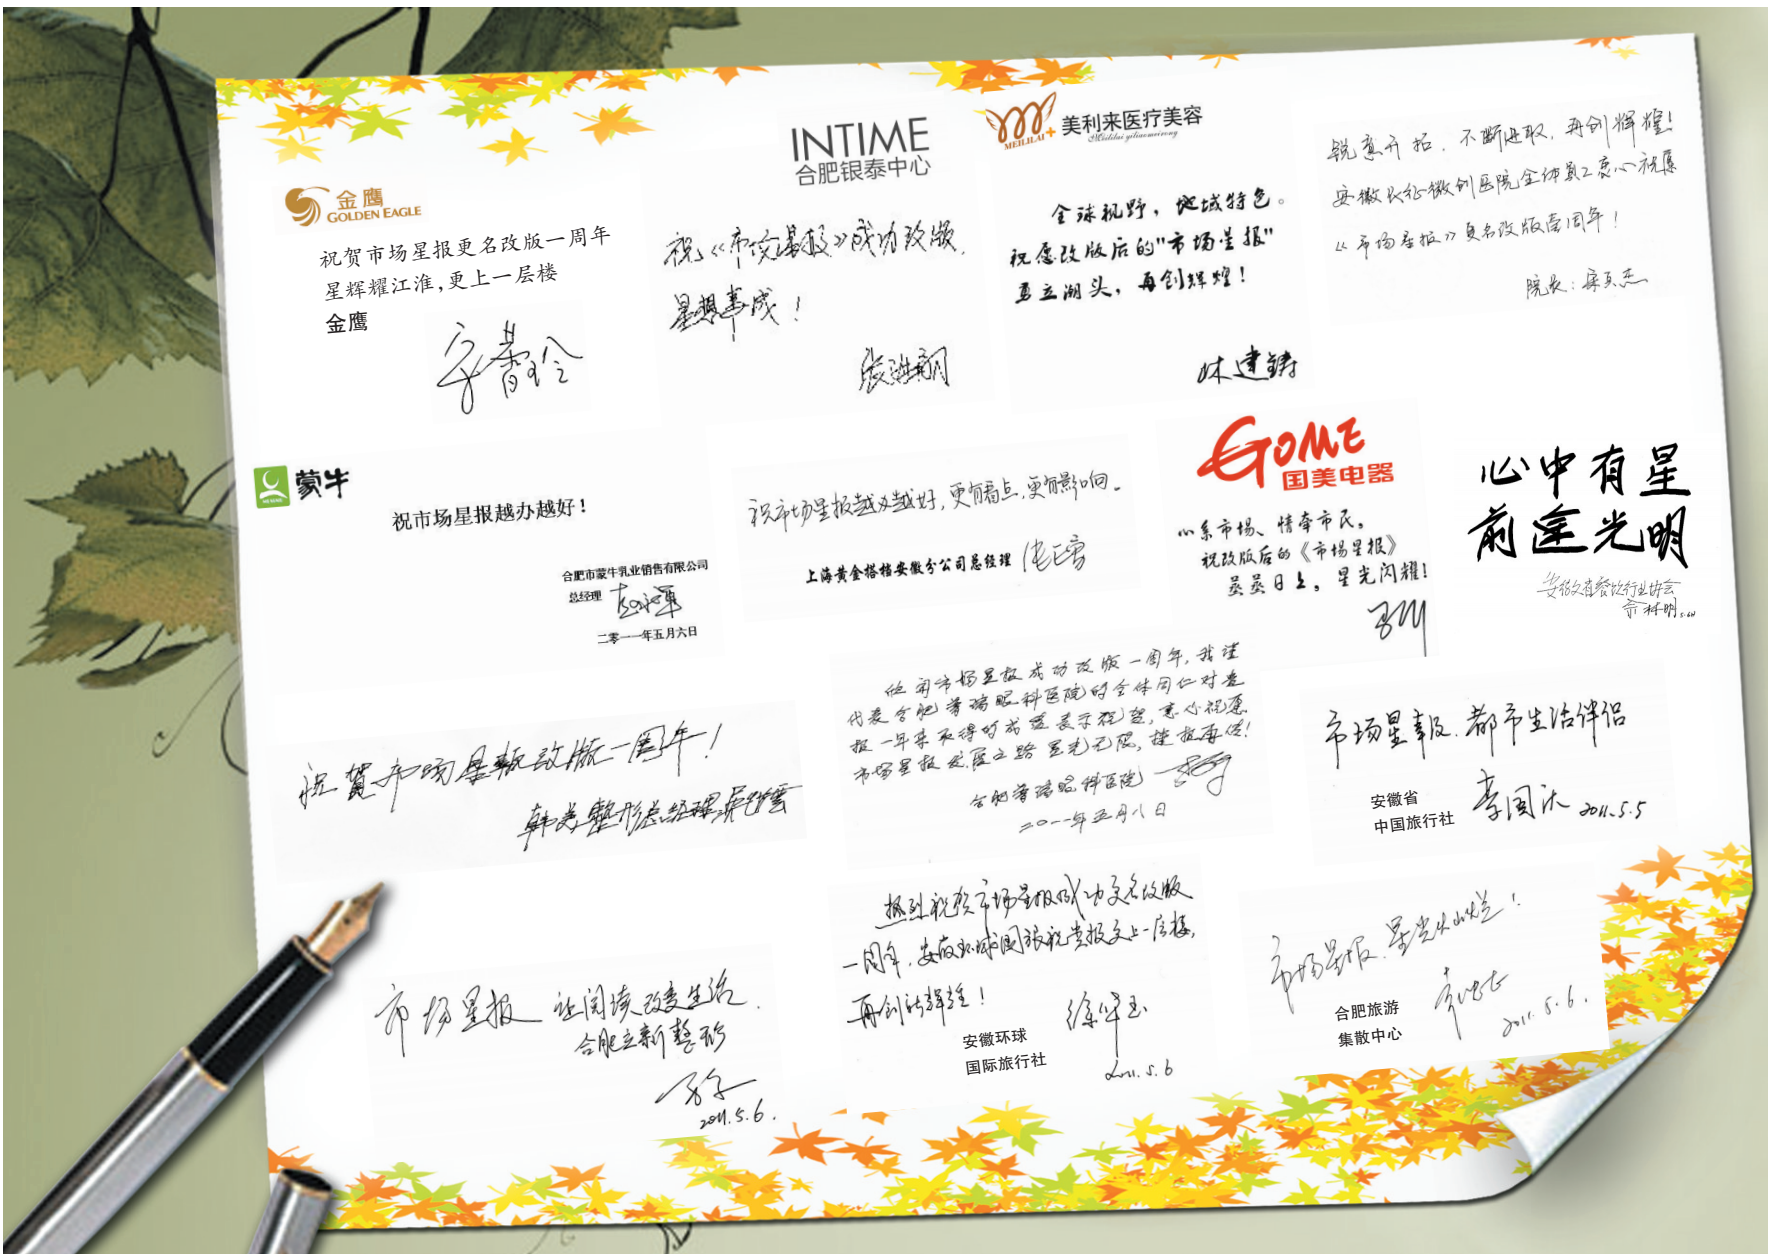 金鹰
GOLDEN EAGLE
祝贺市场星报更名改版一周年
星辉耀江淮,更上一层楼
金鹰
INTIME
合肥银泰中心
祝《市场星报》成功改版,
星想事成!
MEILILAI
美利来医疗美容
Meililai yiliaomeirong
全球视野,地域特色。
祝愿改版后的"市场星报"
勇立潮头,再创辉煌!
林建铸
锐意开拓,不断进取,再创辉煌!
安徽长征微创医院全体员工衷心祝愿
《市场星报》更名改版壹周年!
院长:
蒙牛
祝市场星报越办越好!
合肥市蒙牛乳业销售有限公司
总经理
二零一一年五月六日
祝市场星报越办越好,更有看点,更有影响。
上海黄金搭档安徽分公司总经理
GOME
国美电器
心系市场、情牵市民。
祝改版后的《市场星报》
蒸蒸日上。星光闪耀!
心中有星
前途光明
安徽省餐饮行业协会
祝贺市场星报改版一周年!
韩美整形总经理
欣闻市场星报成功改版一周年,我谨
代表合肥普瑞眼科医院的全体同仁对贵
报一年来取得的成绩表示祝贺,衷心祝愿
市场星报发展之路星光无限,捷报再传!
合肥普瑞眼科医院
二〇一一年五月八日
市场星报,都市生活伴侣
安徽省
中国旅行社
2011.5.5
市场星报 让阅读改变生活.
合肥立新整形
2011.5.6.
热烈祝贺市场星报成功更名改版
一周年,安徽环球国旅祝贵报更上一层楼,
再创新辉煌!
安徽环球
国际旅行社
2011.5.6
市场星报,星光灿烂!
合肥旅游
集散中心
2011.5.6.